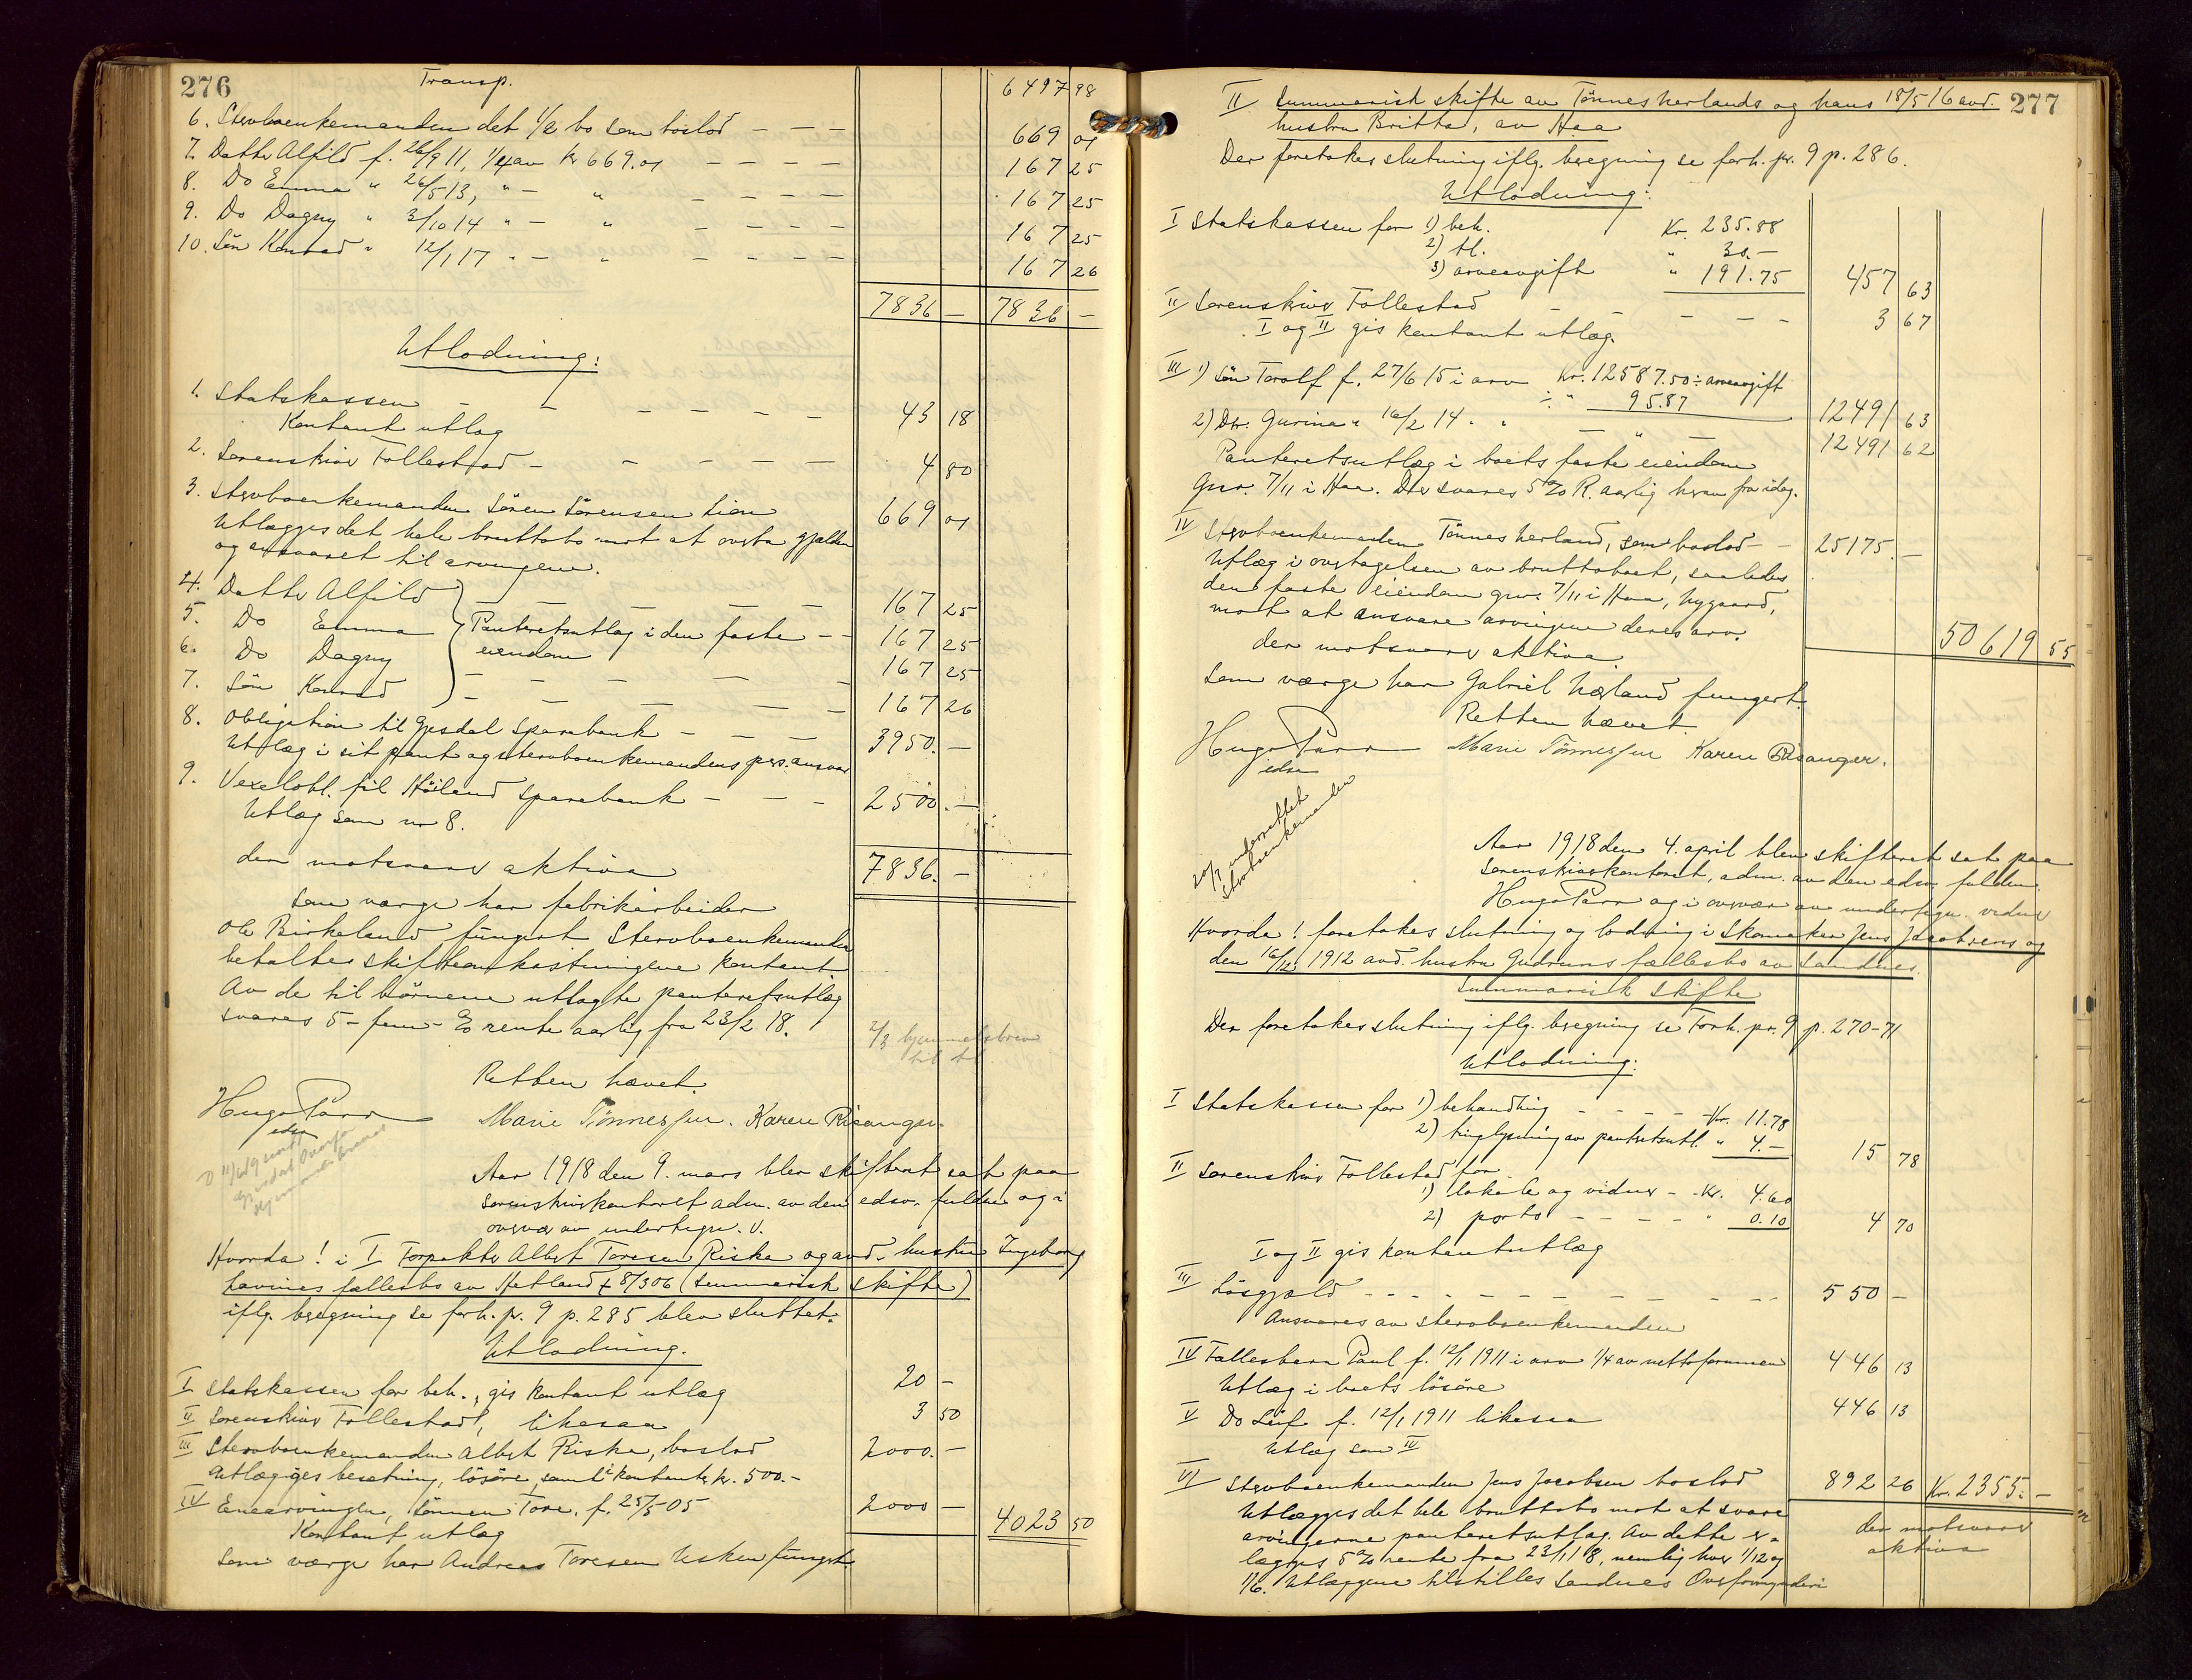 276
Transp. 6497 98
6. Stervboenkemanden det 1/2 bo som boslod — — — 669 01
7. Datter Alfild f. 26/9 11, 1/4 av kr 669.01 — — — — 167 25
8. Do Emma " 26/5 13, " — " — — — — 167 25
9. Do Dagny " 3/10 14 " — " — — — — 167 25
10. Søn Konrad " 12/1 17 " — " — — — — 167 26
7836 — 7836 —
Utlodning:
1. Statskassen — — — — — — 43 18
Kontant utlæg
2. Sorenskriver Follestad — — — — — 4 80
3. Stervboenkemanden Sören Sörensen Lian 669 01
Utlægges det hele bruttobo mot at overta gjælden
og ansvaret til arvingene.
4. Datter Alfild — — — — — 167 25
5. Do Emma Panteretsutlæg i den faste — — 167 25
6. Do Dagny eiendom 167 25
7. Søn Konrad — — — — — 167 26
8. Obligation til Gjesdal Sparebank — — — 3950. —
Utlæg i sit pant og stervboenkemandens pers. ansvar
9. Vexelobl. til Höiland Sparebank — — — 2500. —
Utlæg som nr 8.
der motsvarer aktiva 7836. —
Som værge har fabrikarbeider
Ole Birkeland fungert. Stervboenkemanden
betalte skifteomkostningene kontant.
Av de til børnene utlagte panteretsutlæg
svares 5 – fem – % rente aarlig fra 23/2 18.
2/3 hjemmelsbrev
til tl
Retten hævet.
Hugo Parr Marie Tönnessen. Karen Risanger.
edsv
Aar 1918 den 9. mars blev skifteret sat paa
sorenskriverkontoret adm. av den edsv. fuldm og i
overvær av undertegn. V.
Hvorda! i I Forpakter Albert Toresen Riske og avd. hustru Ingeborg
Lavines fællesbo av Hetland † 8/3 06 (Summarisk skifte)
iflg. beregning se forh. pr. 9 p. 285 blev sluttet.
Utlodning.
I Statskassen for beh., gis kontant utlæg 20 —
II Sorenskriver Follestad, likesaa 3 50
III Stervboenkemanden Albert Riske, boslod 2000. —
Utlægges besætning, lösöre, samt i kontanter kr. 500.–
IV Enearvingen, sönnen Tore, f. 25/5 05 2000 — 4023 50
Kontant utlæg
Som værge har Andreas Toresen Usken fungert.
277
II Summarisk skifte av Tönnes Herlands og hans 18/5 16 avd.
hustru Britta, av Haa
Der foretokes slutning iflg. beregning se forh. pr. 9 p. 286.
Utlodning:
I Statskassen for 1) beh. Kr. 235.88
2) tl. " 30.–
3) arveavgift " 191.75 457 63
II Sorenskriver Follestad — — — — — 3 67
I og II gis kontant utlæg.
III 1) Søn Torolf f. 27/6 15 i arv Kr. 12587.50 ÷ arveavgift
÷ " 95.87 12491 63
2) Dtr. Gurina " 16/2 14 " " — " — 12491 62
Panteretsutlæg i boets faste eiendom
Gnr. 7/11 i Haa. Der svares 5 % R. aarlig herav fra idag.
IV Stervboenkemanden Tönnes Herland, som boslod — 25175. —
Utlæg i overtagelsen av bruttoboet, saaledes
den faste eiendom gnr. 7/11 i Haa, Nygaard,
mot at ansvare arvingene deres arv.
der motsvarer aktiva. 50619 55
Som værge har Gabriel Hærland fungert.
Retten hævet.
Hugo Parr Marie Tönnessen Karen Risanger.
edsv
20/7 underrettet
Stervboenkemanden
Aar 1918 den 4. april blev skifteret sat paa
Sorenskriverkontoret, adm. av den edsv. fuldm.
Hugo Parr og i overvær av undertegn. vidner
Hvorda! foretokes slutning og lodning i Skomaker Jens Jacobsens og
den 16/12 1912 avd. hustru Gudruns fællesbo av Sandnes.
Summarisk Skifte
Der foretokes slutning iflg. beregning se Forh. pr. 9 p. 270–71
Utlodning:
I Statskassen for 1) behandling — — — — Kr. 11.78
2) tinglysning av pantretsutl. " 4.– 15 78
II Sorenskriver Follestad for
1) lokale og vidner — Kr. 4.60
2) porto — — — — " 0.10 4 70
I og II gis kontantutlæg
III Lösgjæld — — — — — — — — 550 —
Ansvares av stervboenkemanden
IV Fællesbarn Paul f. 12/1 1911 i arv 1/4 av nettoformuen 446 13
Utlæg i boets lösöre
V Do Leif f. 12/1 1911 likesaa 446 13
Utlæg som IV
VI Stervboenkemanden Jens Jacobsen boslod 892 26 Kr. 2355. —
Utlægges det hele bruttobo mot at svare der motsvarer
arvingerne panteretsutlæg. Av dette er- aktiva
lægges 5 % rente fra 23/1 18, nemlig hver 1/12 og
1/6. Utlæggene tilstilles Sandnes Overformynderi